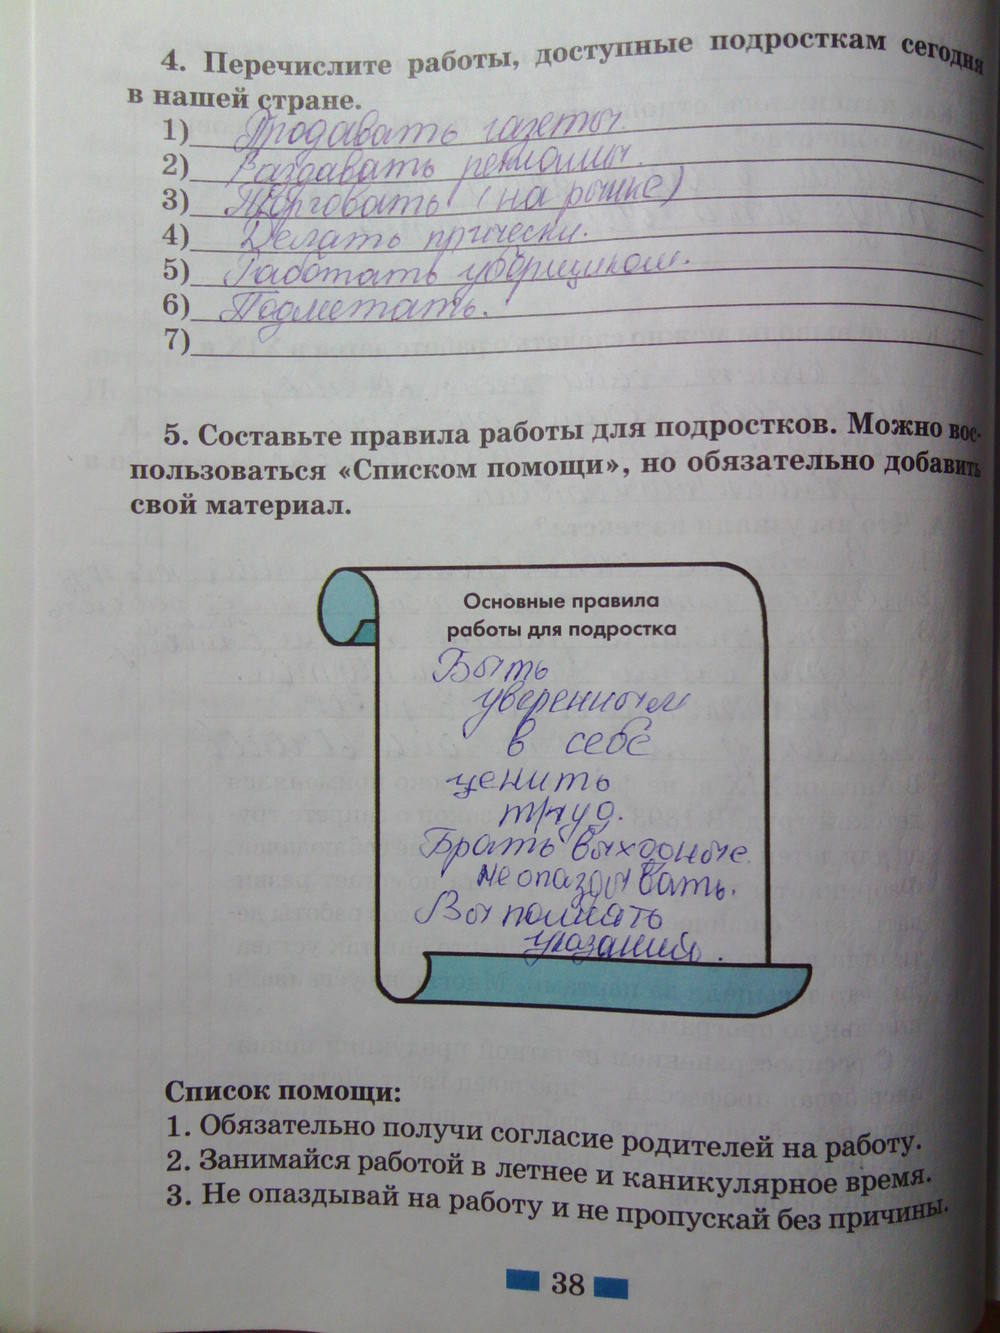 4. Перечислите работы, доступные подросткам сегодня
в нашей стране.
1) Продавать газеты.
2) Раздавать рекламы.
3) Торговать (на рынке)
4) Делать прически.
5) Работать уборщиком.
6) Подметать.
7)
5. Составьте правила работы для подростков. Можно вос-
пользоваться «Списком помощи», но обязательно добавить
свой материал.
Основные правила
работы для подростка
Быть
уверенным
в себе
ценить
труд.
Брать выходные
не опаздывать.
Выполнять
указания.
Список помощи:
1. Обязательно получи согласие родителей на работу.
2. Занимайся работой в летнее и каникулярное время.
3. Не опаздывай на работу и не пропускай без причины.
38